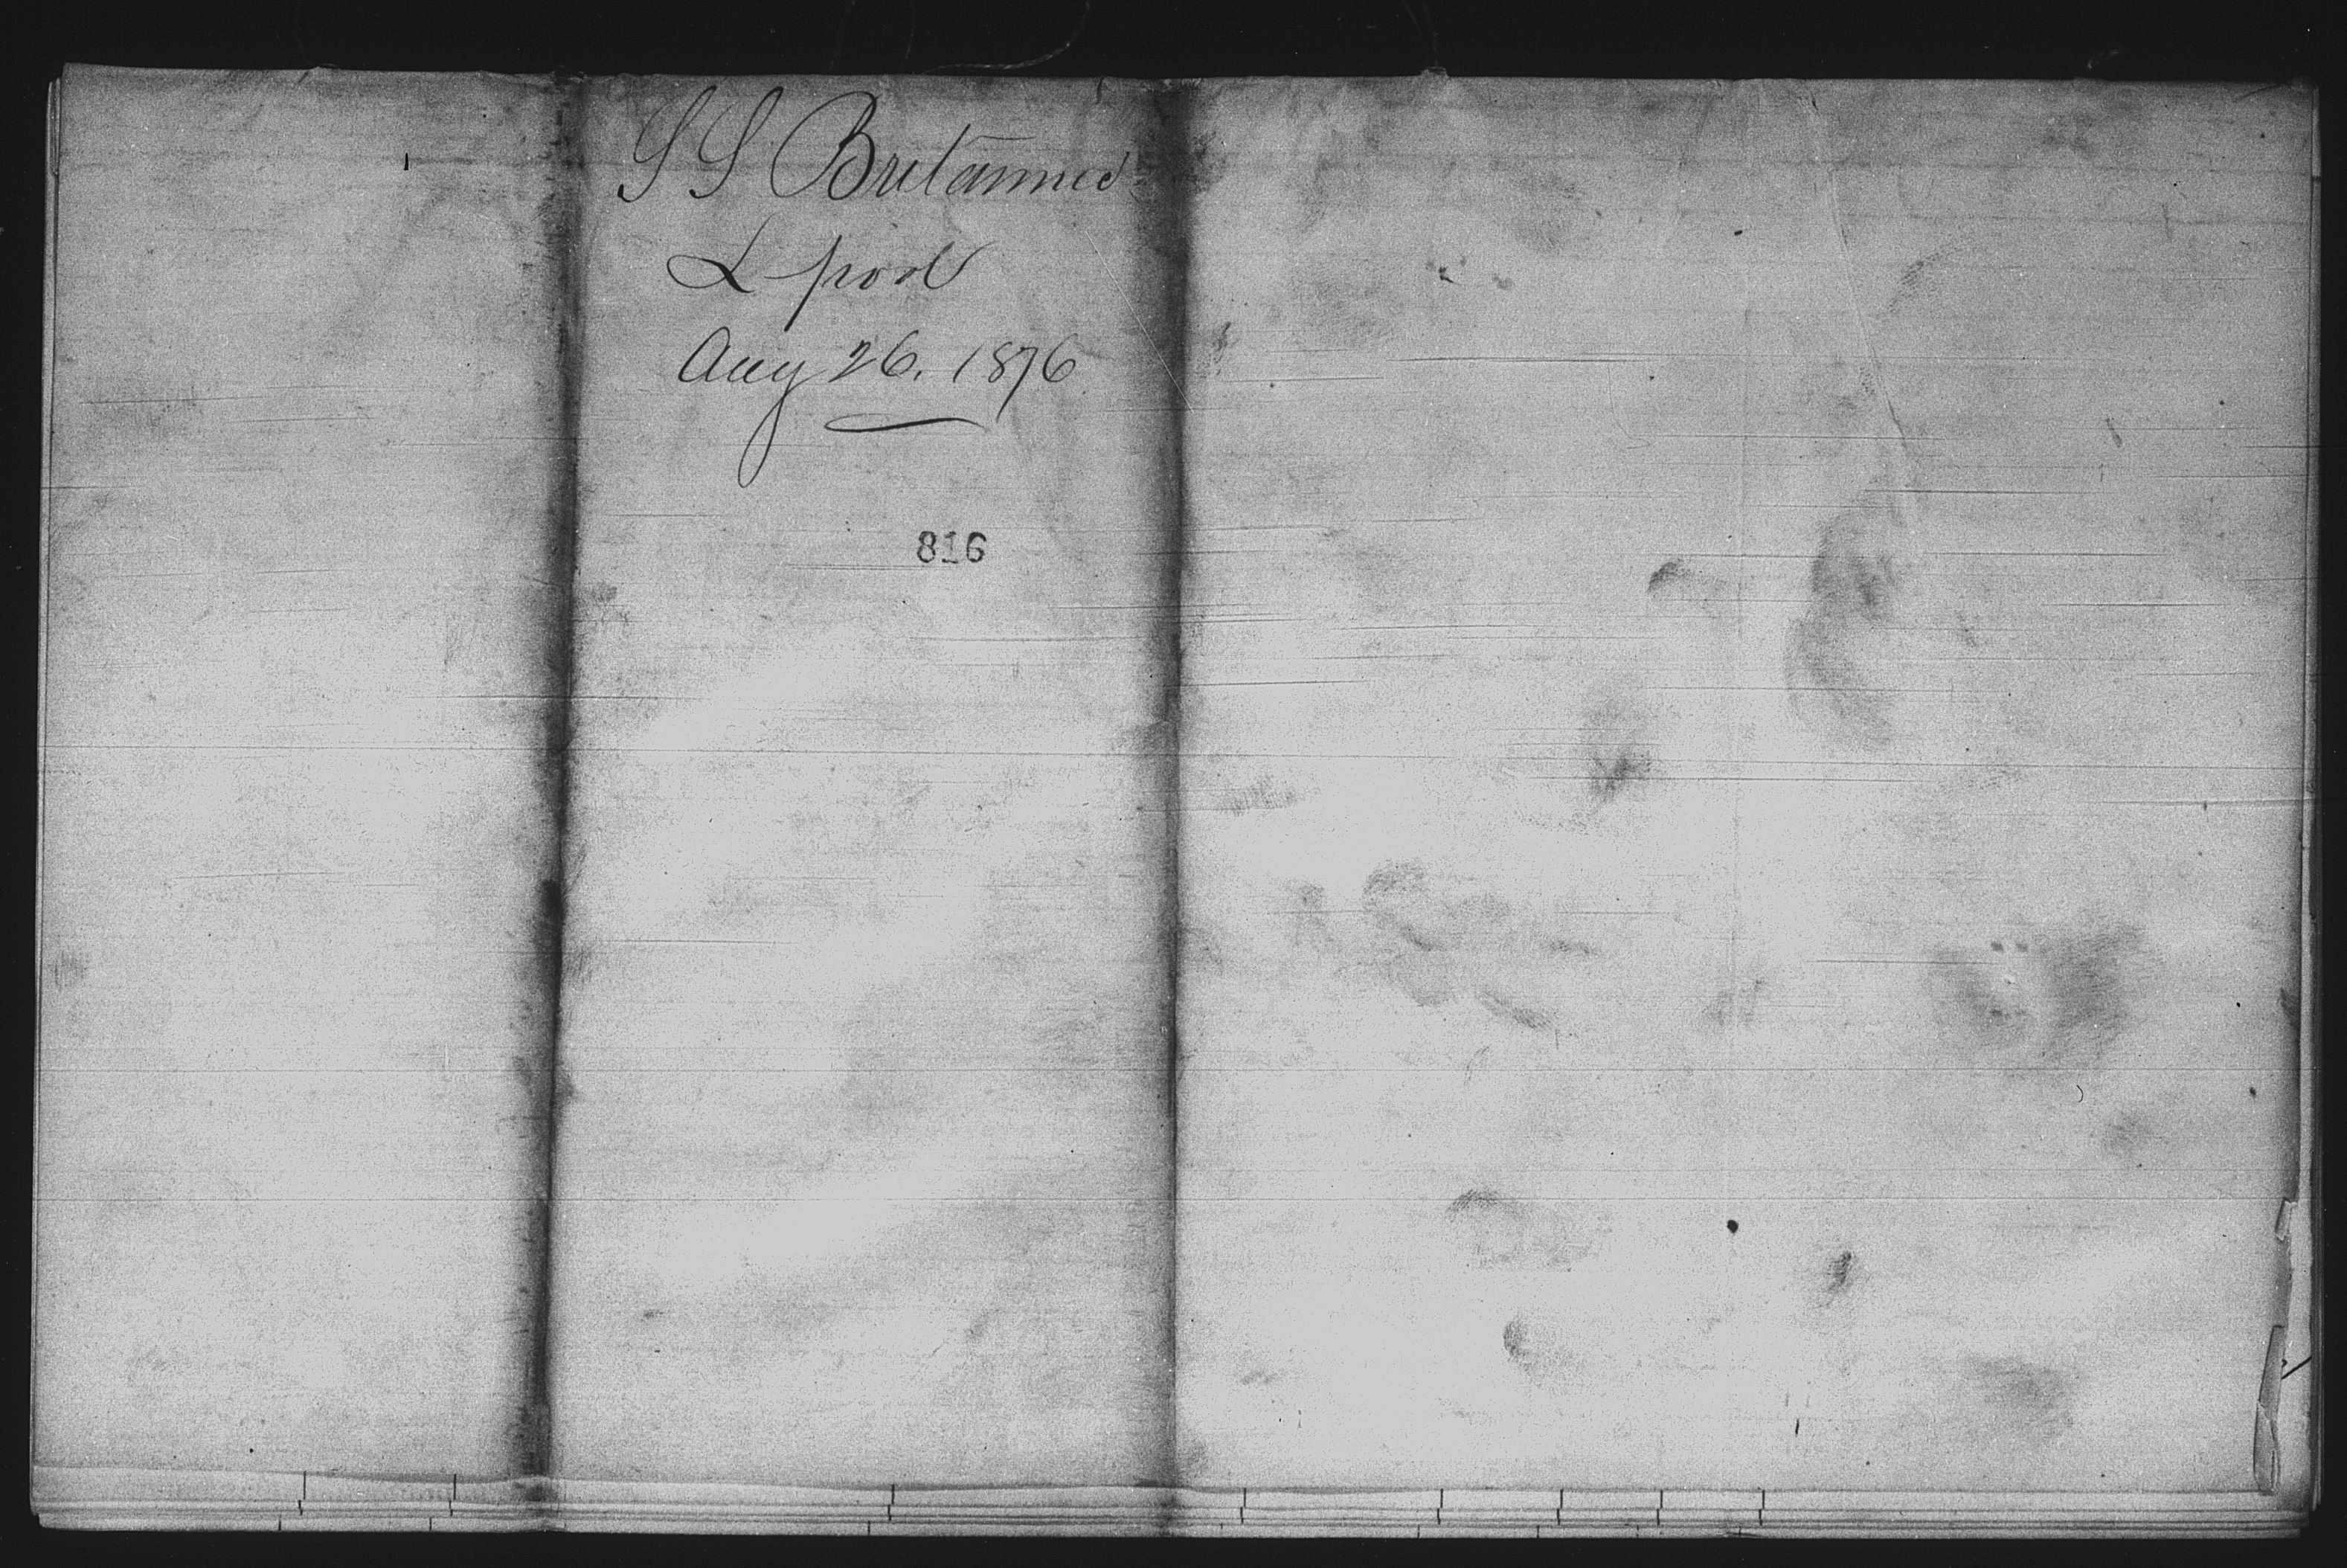 S S Britannic
L pool
Aug 26. 1876
816